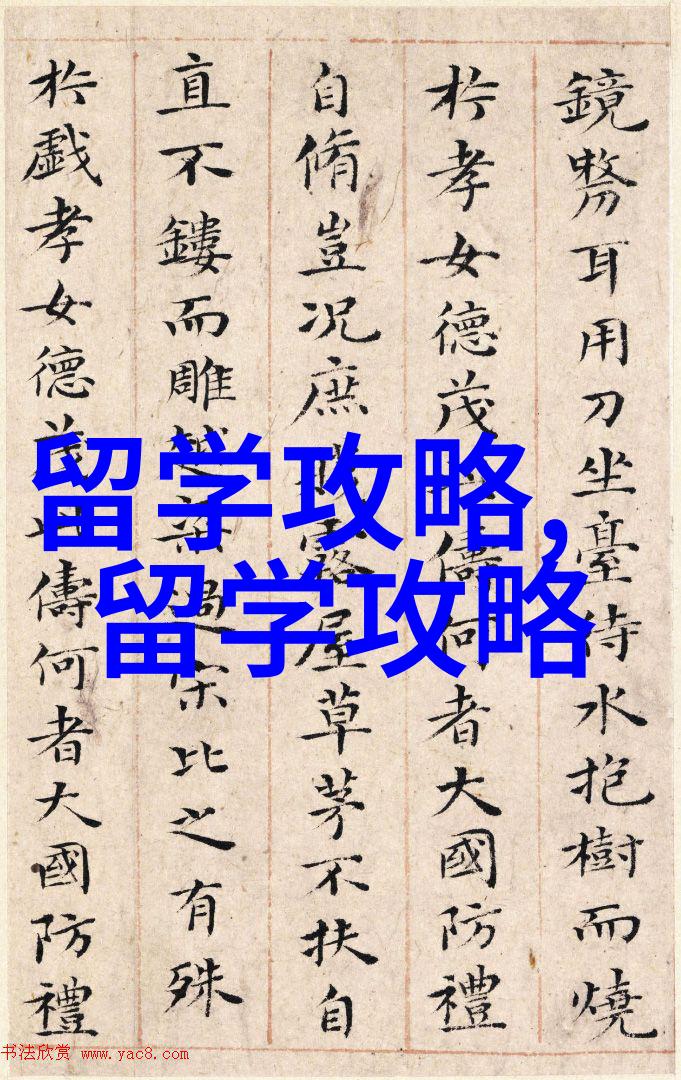 鏡剺耳用刀坐臺待水抱樹而燒
扵孝女德茂儔何者大國防禮
自脩豈況庶露屋草茅不扶自
直不鏤而雕越梁過宋比之有殊
扵戯孝女德茂此儔何者大國防禮
留学攻略,
留学攻略
书法欣赏 www.yac8.com